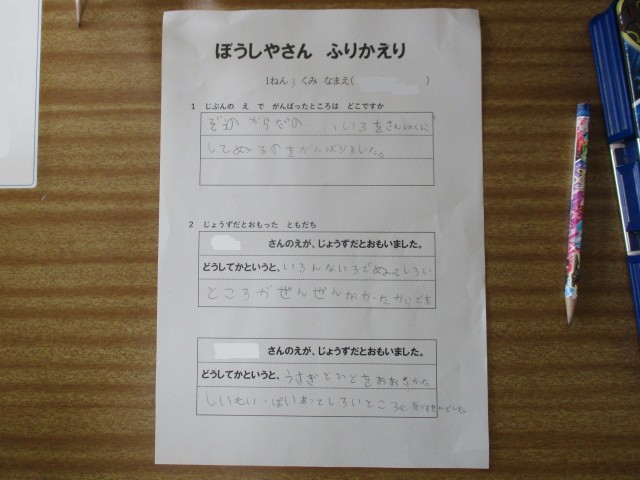 ぼうしやさん ふりかえり
1ねん 3 くみ なまえ( )
1 じぶんの え で がんばったところは どこですか
ぞうの からだの いろをさんしょくに
してぬるのをがんばりました。
2 じょうずだとおもった ともだち
さんのえが、じょうずだとおもいました。
どうしてかというと、いろんないろでぬってしろい
ところがぜんぜんなかったからです
さんのえが、じょうずだとおもいました。
どうしてかというと、うさぎとひとをおおきくかいた
しいもいっぱいあってしろいところ